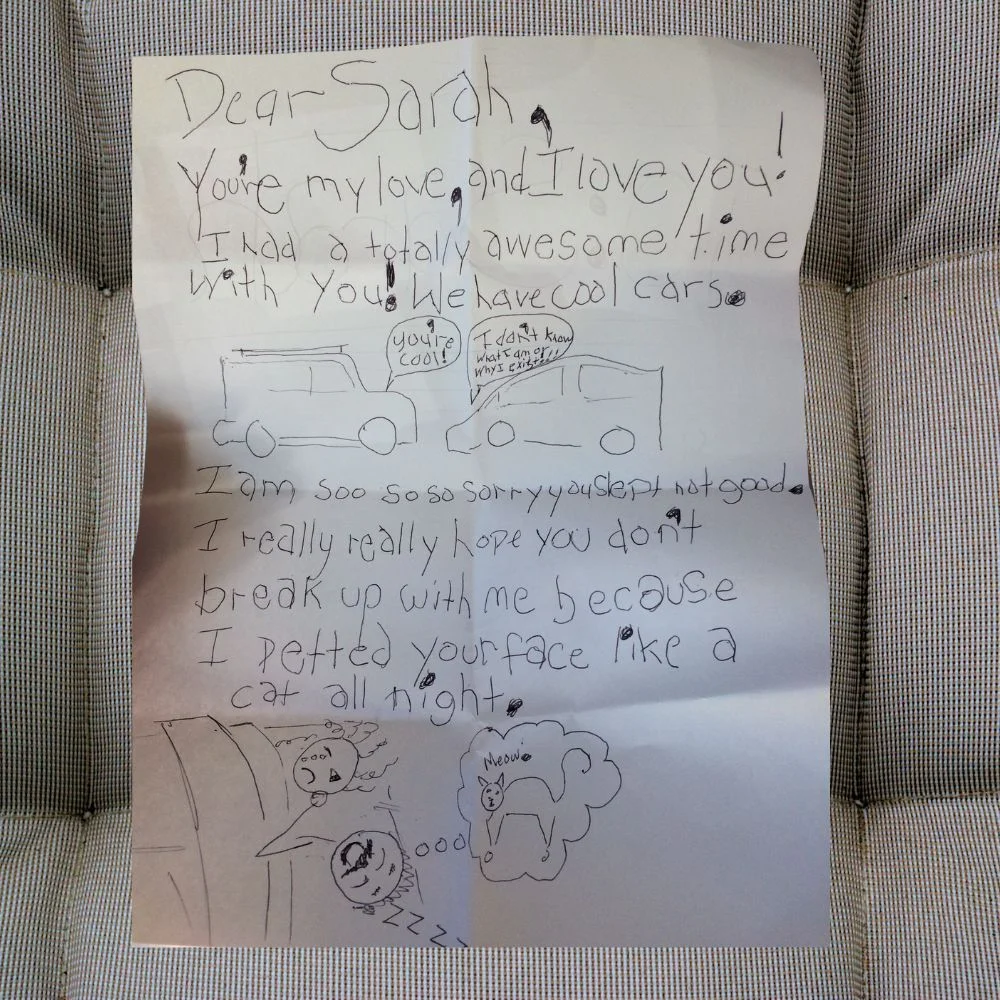 Dear Sarah,
You're my love, and I love you!
I had a totally awesome time
with you! We have cool cars.
you're
cool!
I don't know
what I am or
why I exist!!!
I am soo so so sorry you slept not good.
I really really hope you don't
break up with me because
I petted your face like a
cat all night.
Meow.
ZZZZ